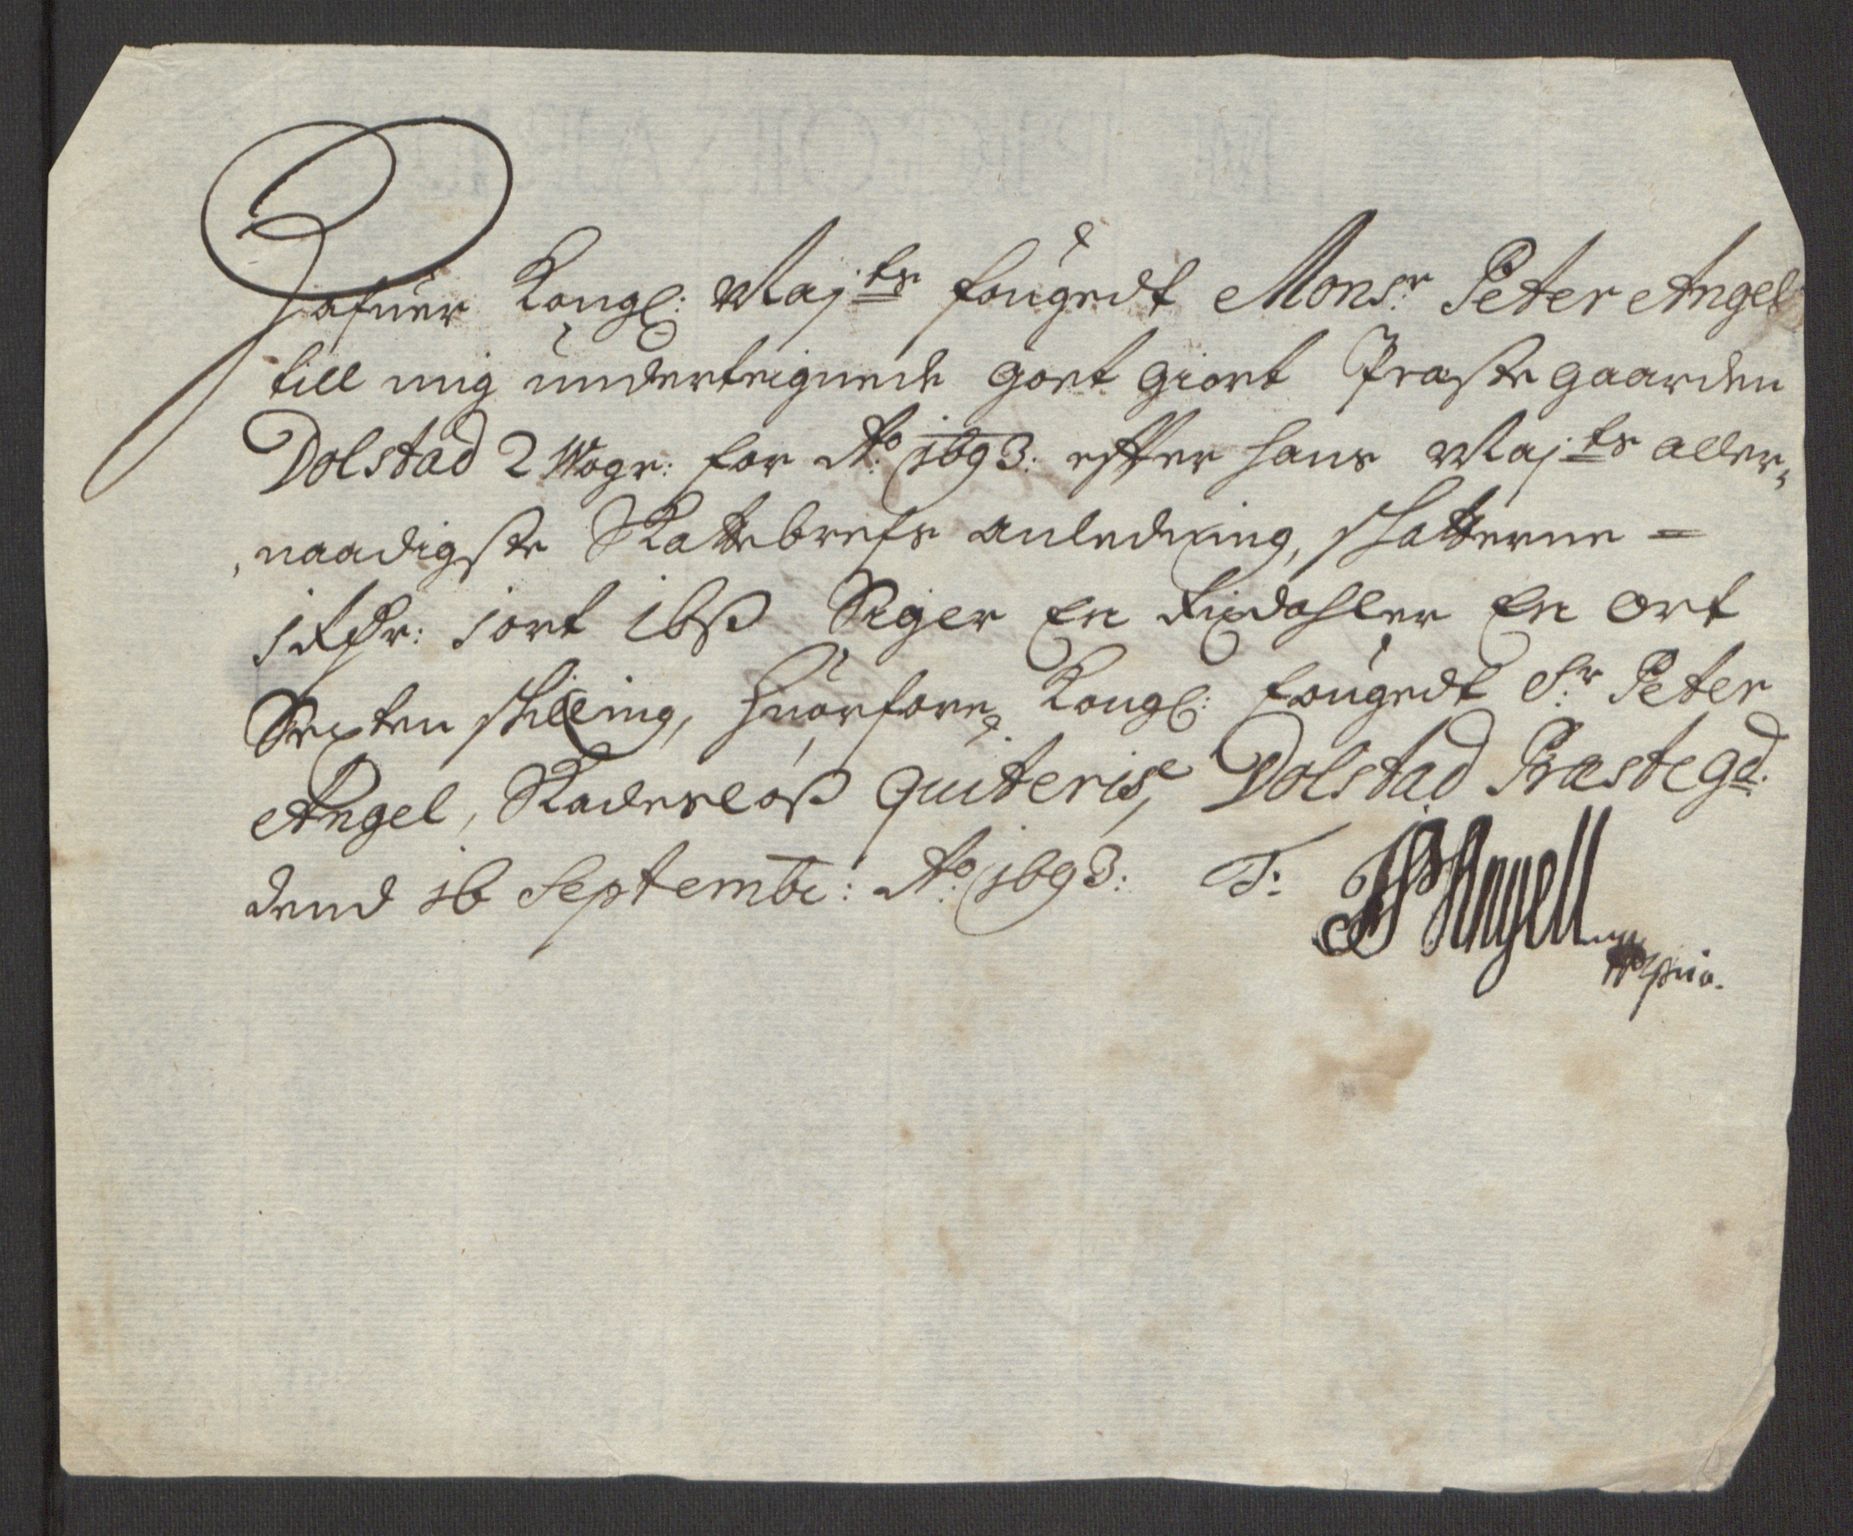 Hafuer Kongl: Maj:ts fougedt Mons:r Peter Angel
till mig underteignede goet giort Præstegaarden
Dolstad 2 Wogr: for Ao: 1693: effter hans Maj:ts aller,,
,naadigste Skattebrefs anledning, skatterne =
1 Rdr: 1 ort 16 ß Siger En Rixdahler En Ort
Sexten skilling, huorfore Kongl: fougedt Sr: Peter
Angel, Skadesløß quiteris, Dolstad Præstegd:
dend 16 Septembr: Ao: 1693: T:
Angell
mppria.